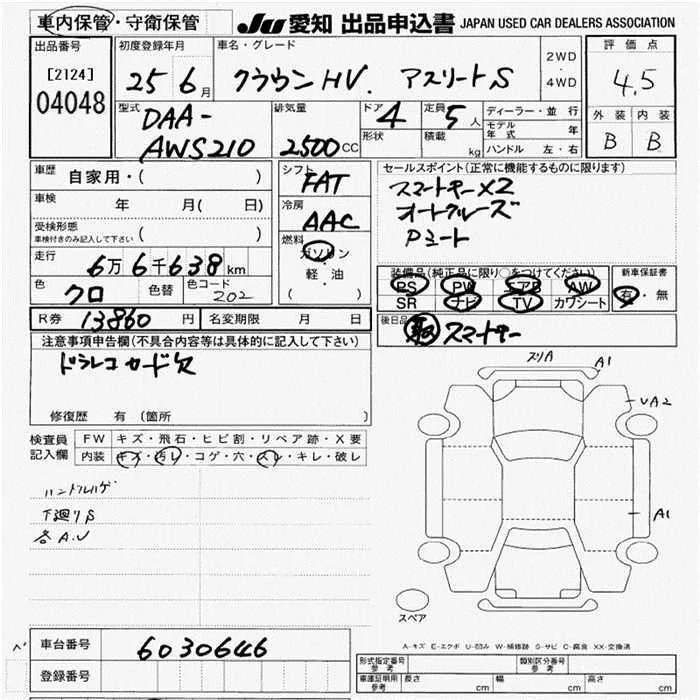 車内保管・守衛保管
JU 愛知 出品申込書 JAPAN USED CAR DEALERS ASSOCIATION
出品番号
[2124]
04048
初度登録年月
25 6月
車名・グレード
クラウンHV. アスリートS
2WD
・
4WD
評価点
4.5
外装 内装
B B
型式
DAA-
AWS210
排気量
2500cc
ドア 4
形状
定員 5人
積載 kg
ディーラー・並行
モデル年式 年
ハンドル 左・右
車歴 自家用・( )
車検 年 月( 日)
受検形態
車検付きのみ記入して下さい ( )
走行
6万6千638km
色 クロ 色替 色コード 202
シフト
FAT
冷房
AAC
燃料
ガソリン
・
軽・油
( )
セールスポイント(正常に機能するものに限ります)
スマートキーX2
オートクルーズ
Pシート
装備品(純正品に限り○をつけてください)
PS PW エアB AW
SR ナビ TV カワシート
新車保証書
有・無
後日品
スマートキー
R券 13860円 名変期限 月 日
注意事項申告欄(不具合内容等は具体的に記入して下さい)
ドラレコカード欠
修復歴 有(箇所 )
検査員
記入欄
FW キズ・飛石・ヒビ割・リペア跡・X要
内装 キズ・汚レ・コゲ・穴・スレ・キレ・破レ
ハンドルハゲ
下廻りS
各A.U
スリA
A1
UA2
A1
スペア
A-キズ E-エクボ U-凹み W-補修跡 S-サビ C-腐食 XX-交換済
車台番号 6030646
登録番号
形式指定番号
参考
類別区分番号
参考
車庫証明用
参考
長さ cm 幅 cm 高さ cm